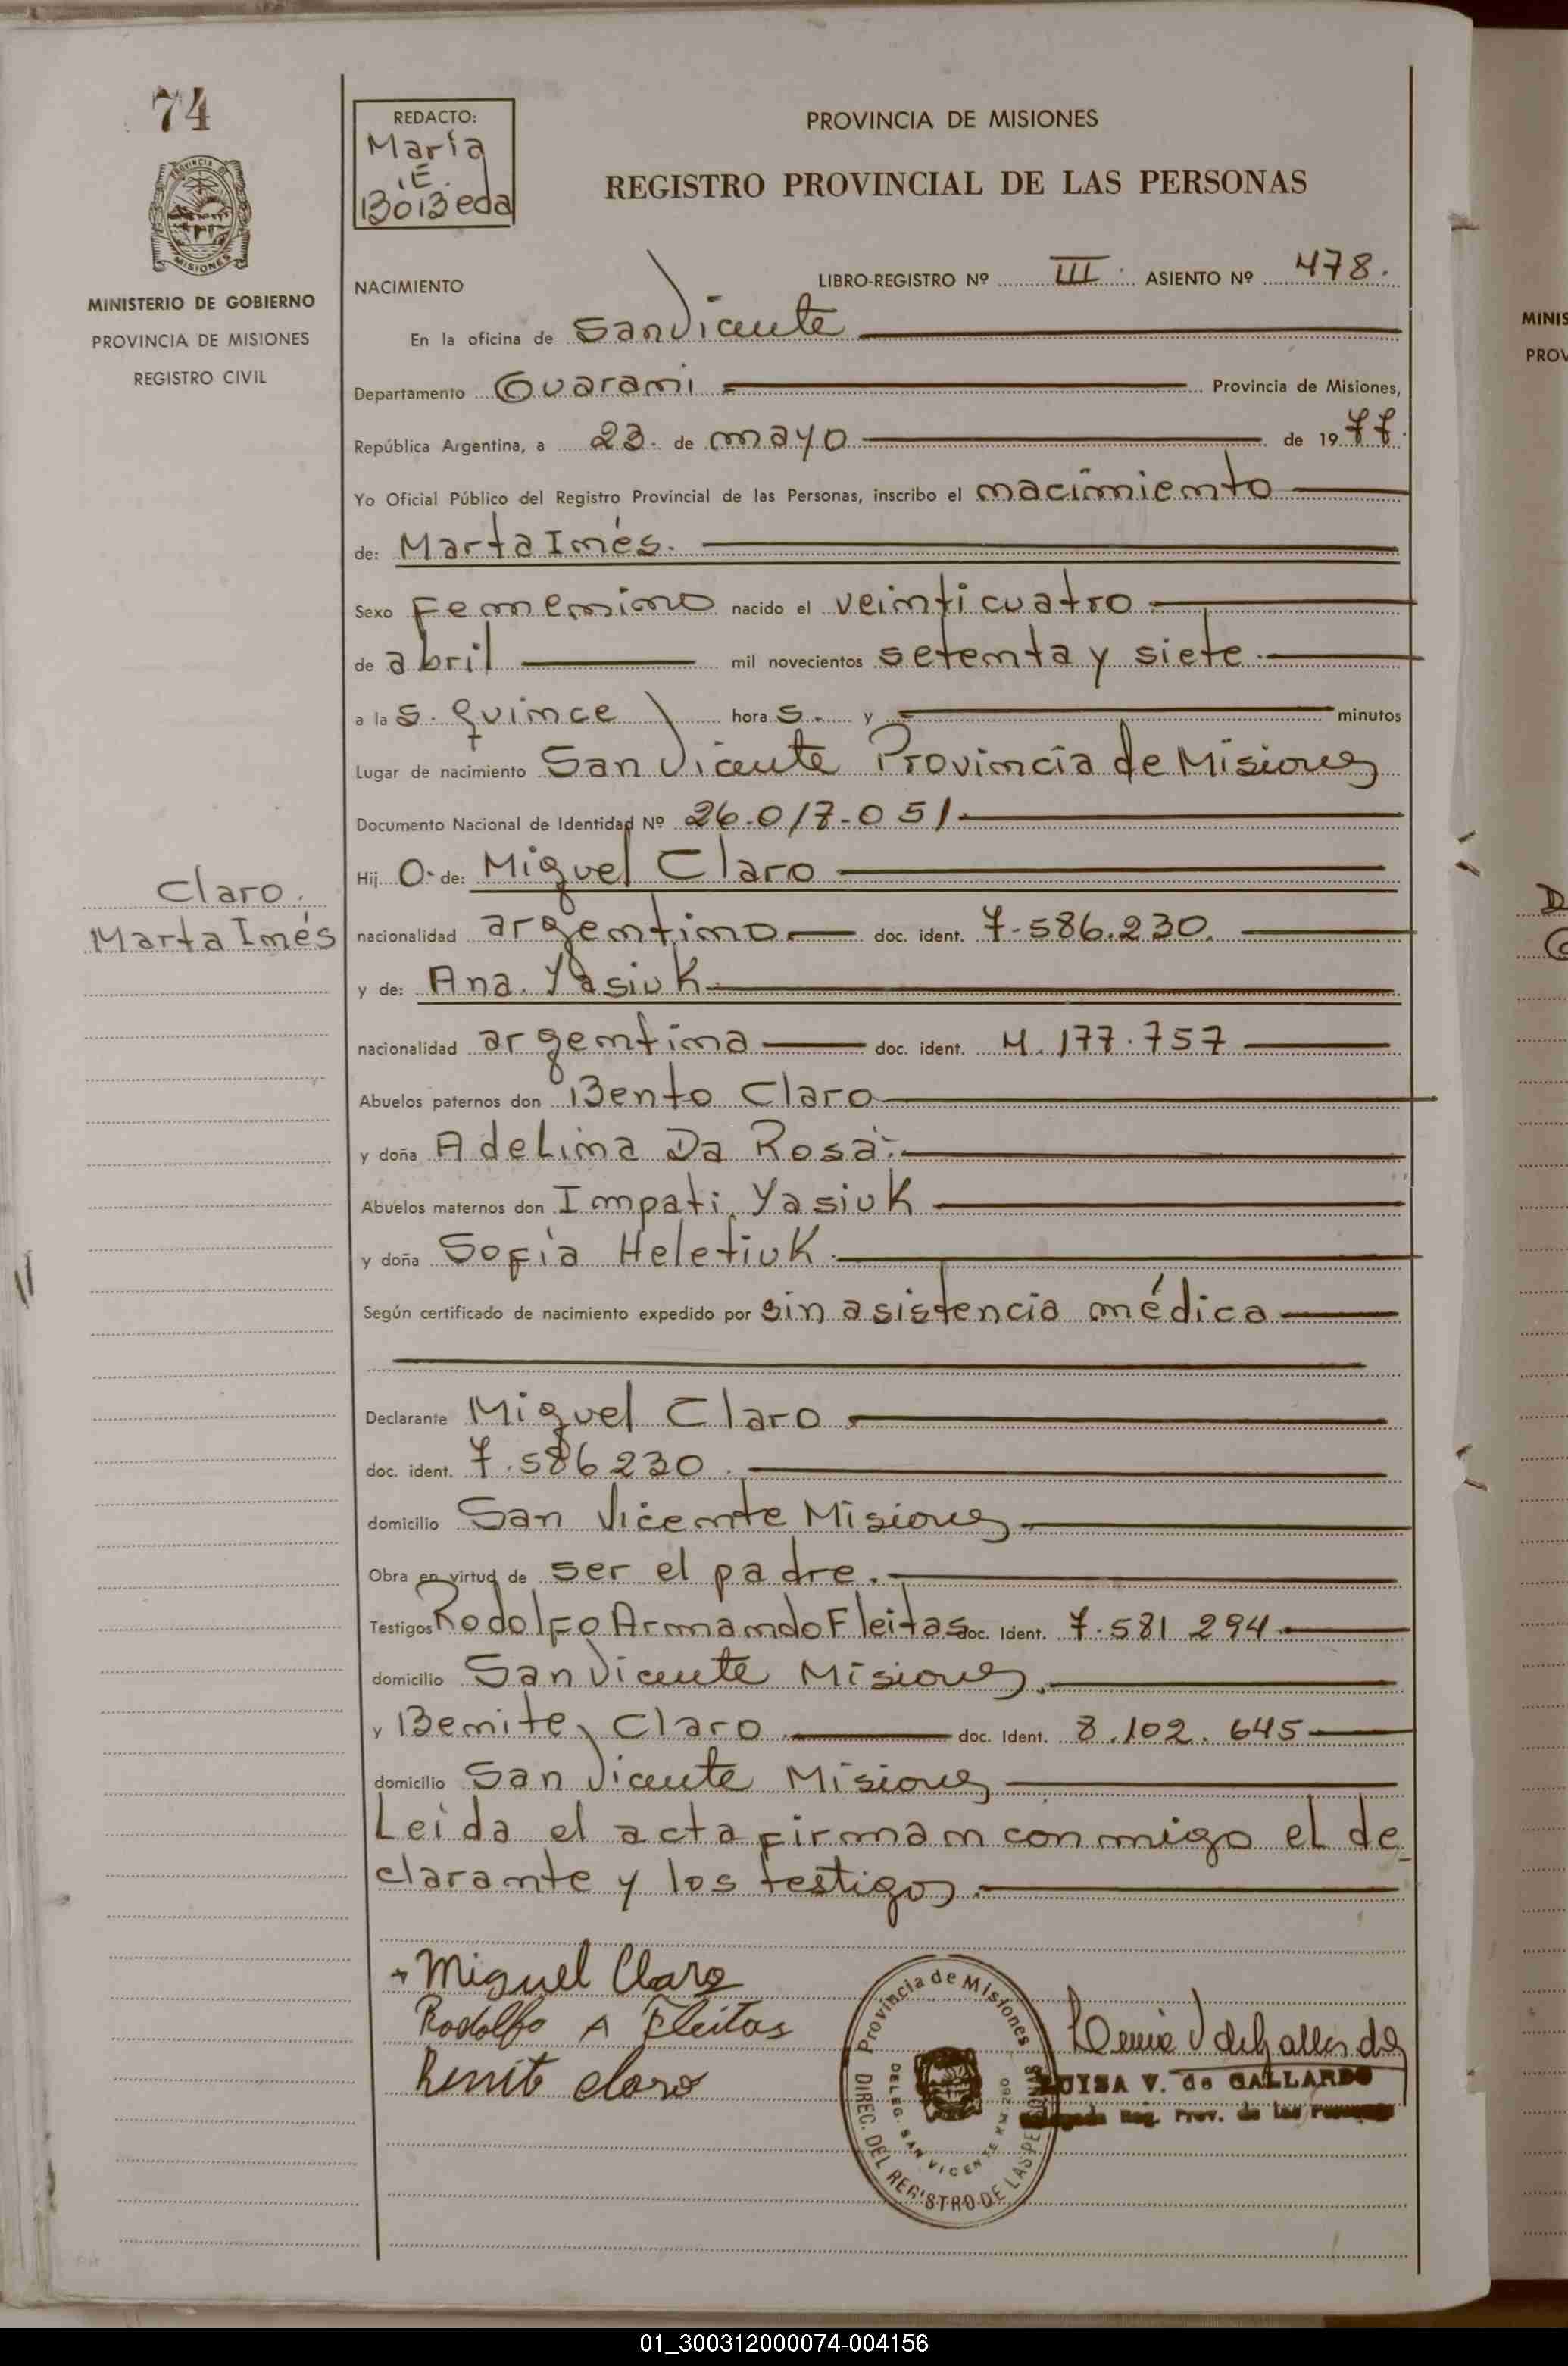 74
PROVINCIA
MISIONES
MINISTERIO DE GOBIERNO
PROVINCIA DE MISIONES
REGISTRO CIVIL
REDACTO:
María
E.
Bobeda
PROVINCIA DE MISIONES
REGISTRO PROVINCIAL DE LAS PERSONAS
NACIMIENTO
LIBRO-REGISTRO Nº III. ASIENTO Nº 478.
En la oficina de San Vicente
Departamento Guarani Provincia de Misiones,
República Argentina, a 23. de mayo de 1977.
Yo Oficial Público del Registro Provincial de las Personas, inscribo el nacimiento
de: Marta Inés.
Sexo Femenino nacido el veinticuatro
de abril mil novecientos setenta y siete.
a las. quince horas. y minutos
Lugar de nacimiento San Vicente Provincia de Misiones
Documento Nacional de Identidad Nº 26.017.051
Hijo. de: Miguel Claro
Claro.
Marta Inés
nacionalidad argentino. doc. ident. 7.586.230.
y de: Ana. Yasiuk
nacionalidad argentina doc. ident. 4.177.757
Abuelos paternos don Bento Claro
y doña Adelina Da Rosa.
Abuelos maternos don Impati Yasiuk
y doña Sofía Heletiuk.
Según certificado de nacimiento expedido por sin asistencia médica
Declarante Miguel Claro
doc. ident. 7.586230.
domicilio San Vicente Misiones
Obra en virtud de ser el padre.
Testigos Rodolfo Armando Fleitas doc. Ident. 7.581 294
domicilio San Vicente Misiones.
y Benite Claro doc. Ident. 8.102.645
domicilio San Vicente Misiones
Leida el acta firman conmigo el de
clarante y los testigos.
Miguel Claro
Rodolfo A Fleitas
Benit claro
Provincia de Misiones
DIREC. DEL REGISTRO DE LAS PERSONAS
DELEG. SAN VICENTE KM 260
LUISA V. de GALLARDO
Delegada Reg. Prov. de las Personas
MINIS
PROV
01_300312000074-004156